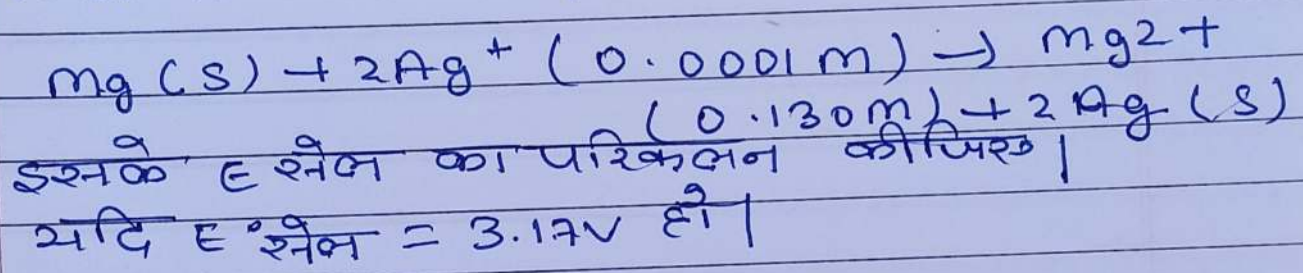 Mg (s) + 2Ag+ (0.0001m) → mg2+
(0.130m) + 2Ag (s)
इसके E सेल का परिकलन कीजिए।
यदि E°सेल = 3.17V हो।